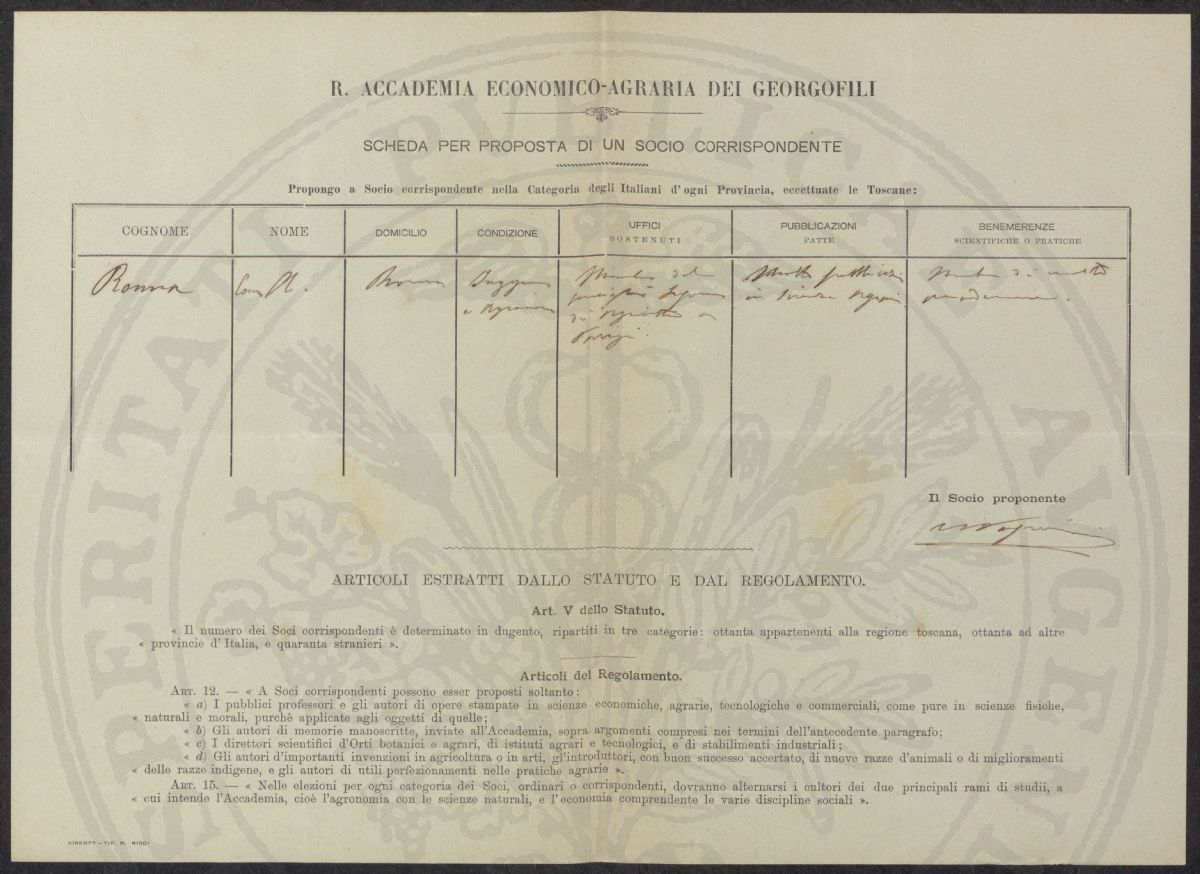 R. ACCADEMIA ECONOMICO-AGRARIA DEI GEORGOFILI
SCHEDA PER PROPOSTA DI UN SOCIO CORRISPONDENTE
Propongo a Socio corrispondente nella Categoria degli Italiani d'ogni Provincia, eccettuate le Toscane:
COGNOME
NOME
DOMICILIO
CONDIZIONE
UFFICI
SOSTENUTI
PUBBLICAZIONI
FATTE
BENEMERENZE
SCIENTIFICHE O PRATICHE
Ronna
Com. A.
Roma
Ingegnere
e Agronomo
Membro del
consiglio Superiore
di Agricoltura a
Parigi.
Molte pubblicazioni
in Scienze Agrarie
Membro di molte
accademie.
Il Socio proponente
ARTICOLI ESTRATTI DALLO STATUTO E DAL REGOLAMENTO.
Art. V dello Statuto.
« Il numero dei Soci corrispondenti è determinato in dugento, ripartiti in tre categorie: ottanta appartenenti alla regione toscana, ottanta ad altre
« provincie d'Italia, e quaranta stranieri ».
Articoli del Regolamento.
ART. 12. — « A Soci corrispondenti possono esser proposti soltanto:
« a) I pubblici professori e gli autori di opere stampate in scienze economiche, agrarie, tecnologiche e commerciali, come pure in scienze fisiche,
« naturali e morali, purchè applicate agli oggetti di quelle;
« b) Gli autori di memorie manoscritte, inviate all'Accademia, sopra argomenti compresi nei termini dell'antecedente paragrafo;
« c) I direttori scientifici d'Orti botanici e agrari, di istituti agrari e tecnologici, e di stabilimenti industriali;
« d) Gli autori d'importanti invenzioni in agricoltura o in arti, gl'introduttori, con buon successo accertato, di nuove razze d'animali o di miglioramenti
« delle razze indigene, e gli autori di utili perfezionamenti nelle pratiche agrarie ».
ART. 15. — « Nelle elezioni per ogni categoria dei Soci, ordinari o corrispondenti, dovranno alternarsi i cultori dei due principali rami di studii, a
« cui intende l'Accademia, cioè l'agronomia con le scienze naturali, e l'economia comprendente le varie discipline sociali ».
FIRENZE—TIP. M. RICCI